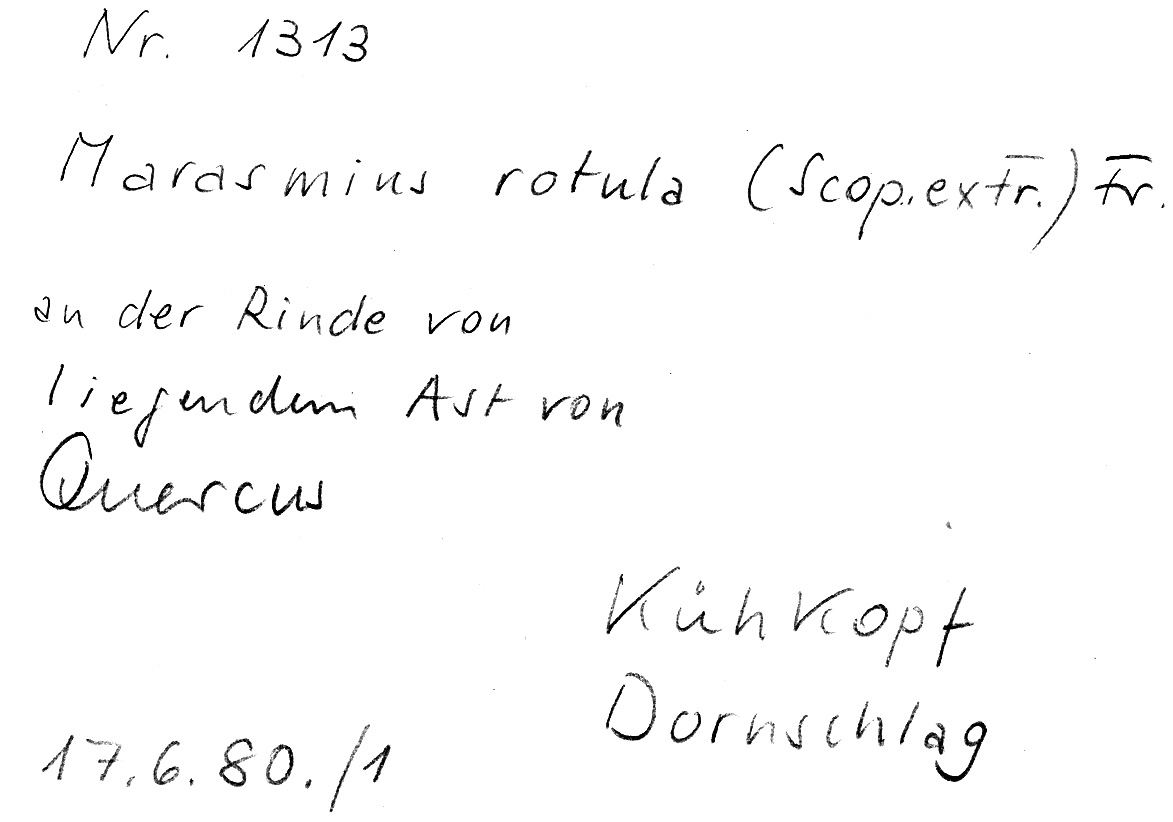 Nr. 1313
Marasmius rotula (Scop. ex Fr.) Fr.
an der Rinde von
liegendem Ast von
Quercus
Kühkopf
Dornschlag
17.6.80./1